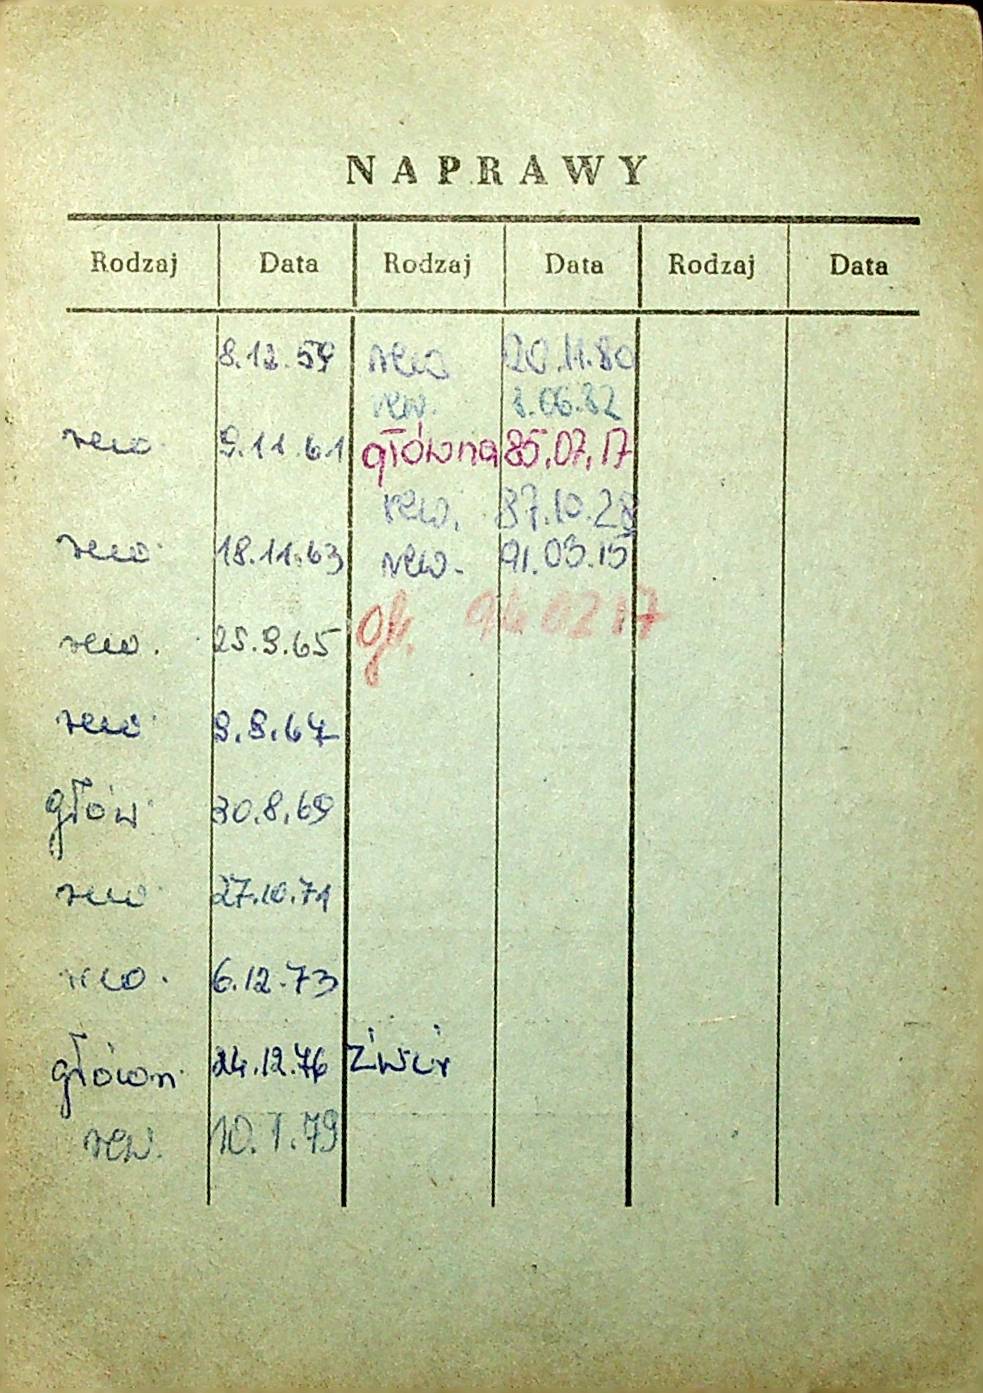 NAPRAWY
Rodzaj Data Rodzaj Data Rodzaj Data
8.12.59 rew 20.11.80
rew. 8.06.82
rew. 9.11.61 główna 85.07.17
rew. 87.10.28
rew. 18.11.63 rew. 91.03.15
gł. 94 02 17
rew. 25.9.65
rew. 9.8.67
głów. 30.8.69
rew. 27.10.71
rew. 6.12.73
główn. 24.12.76 Żwir
rew. 10.1.79